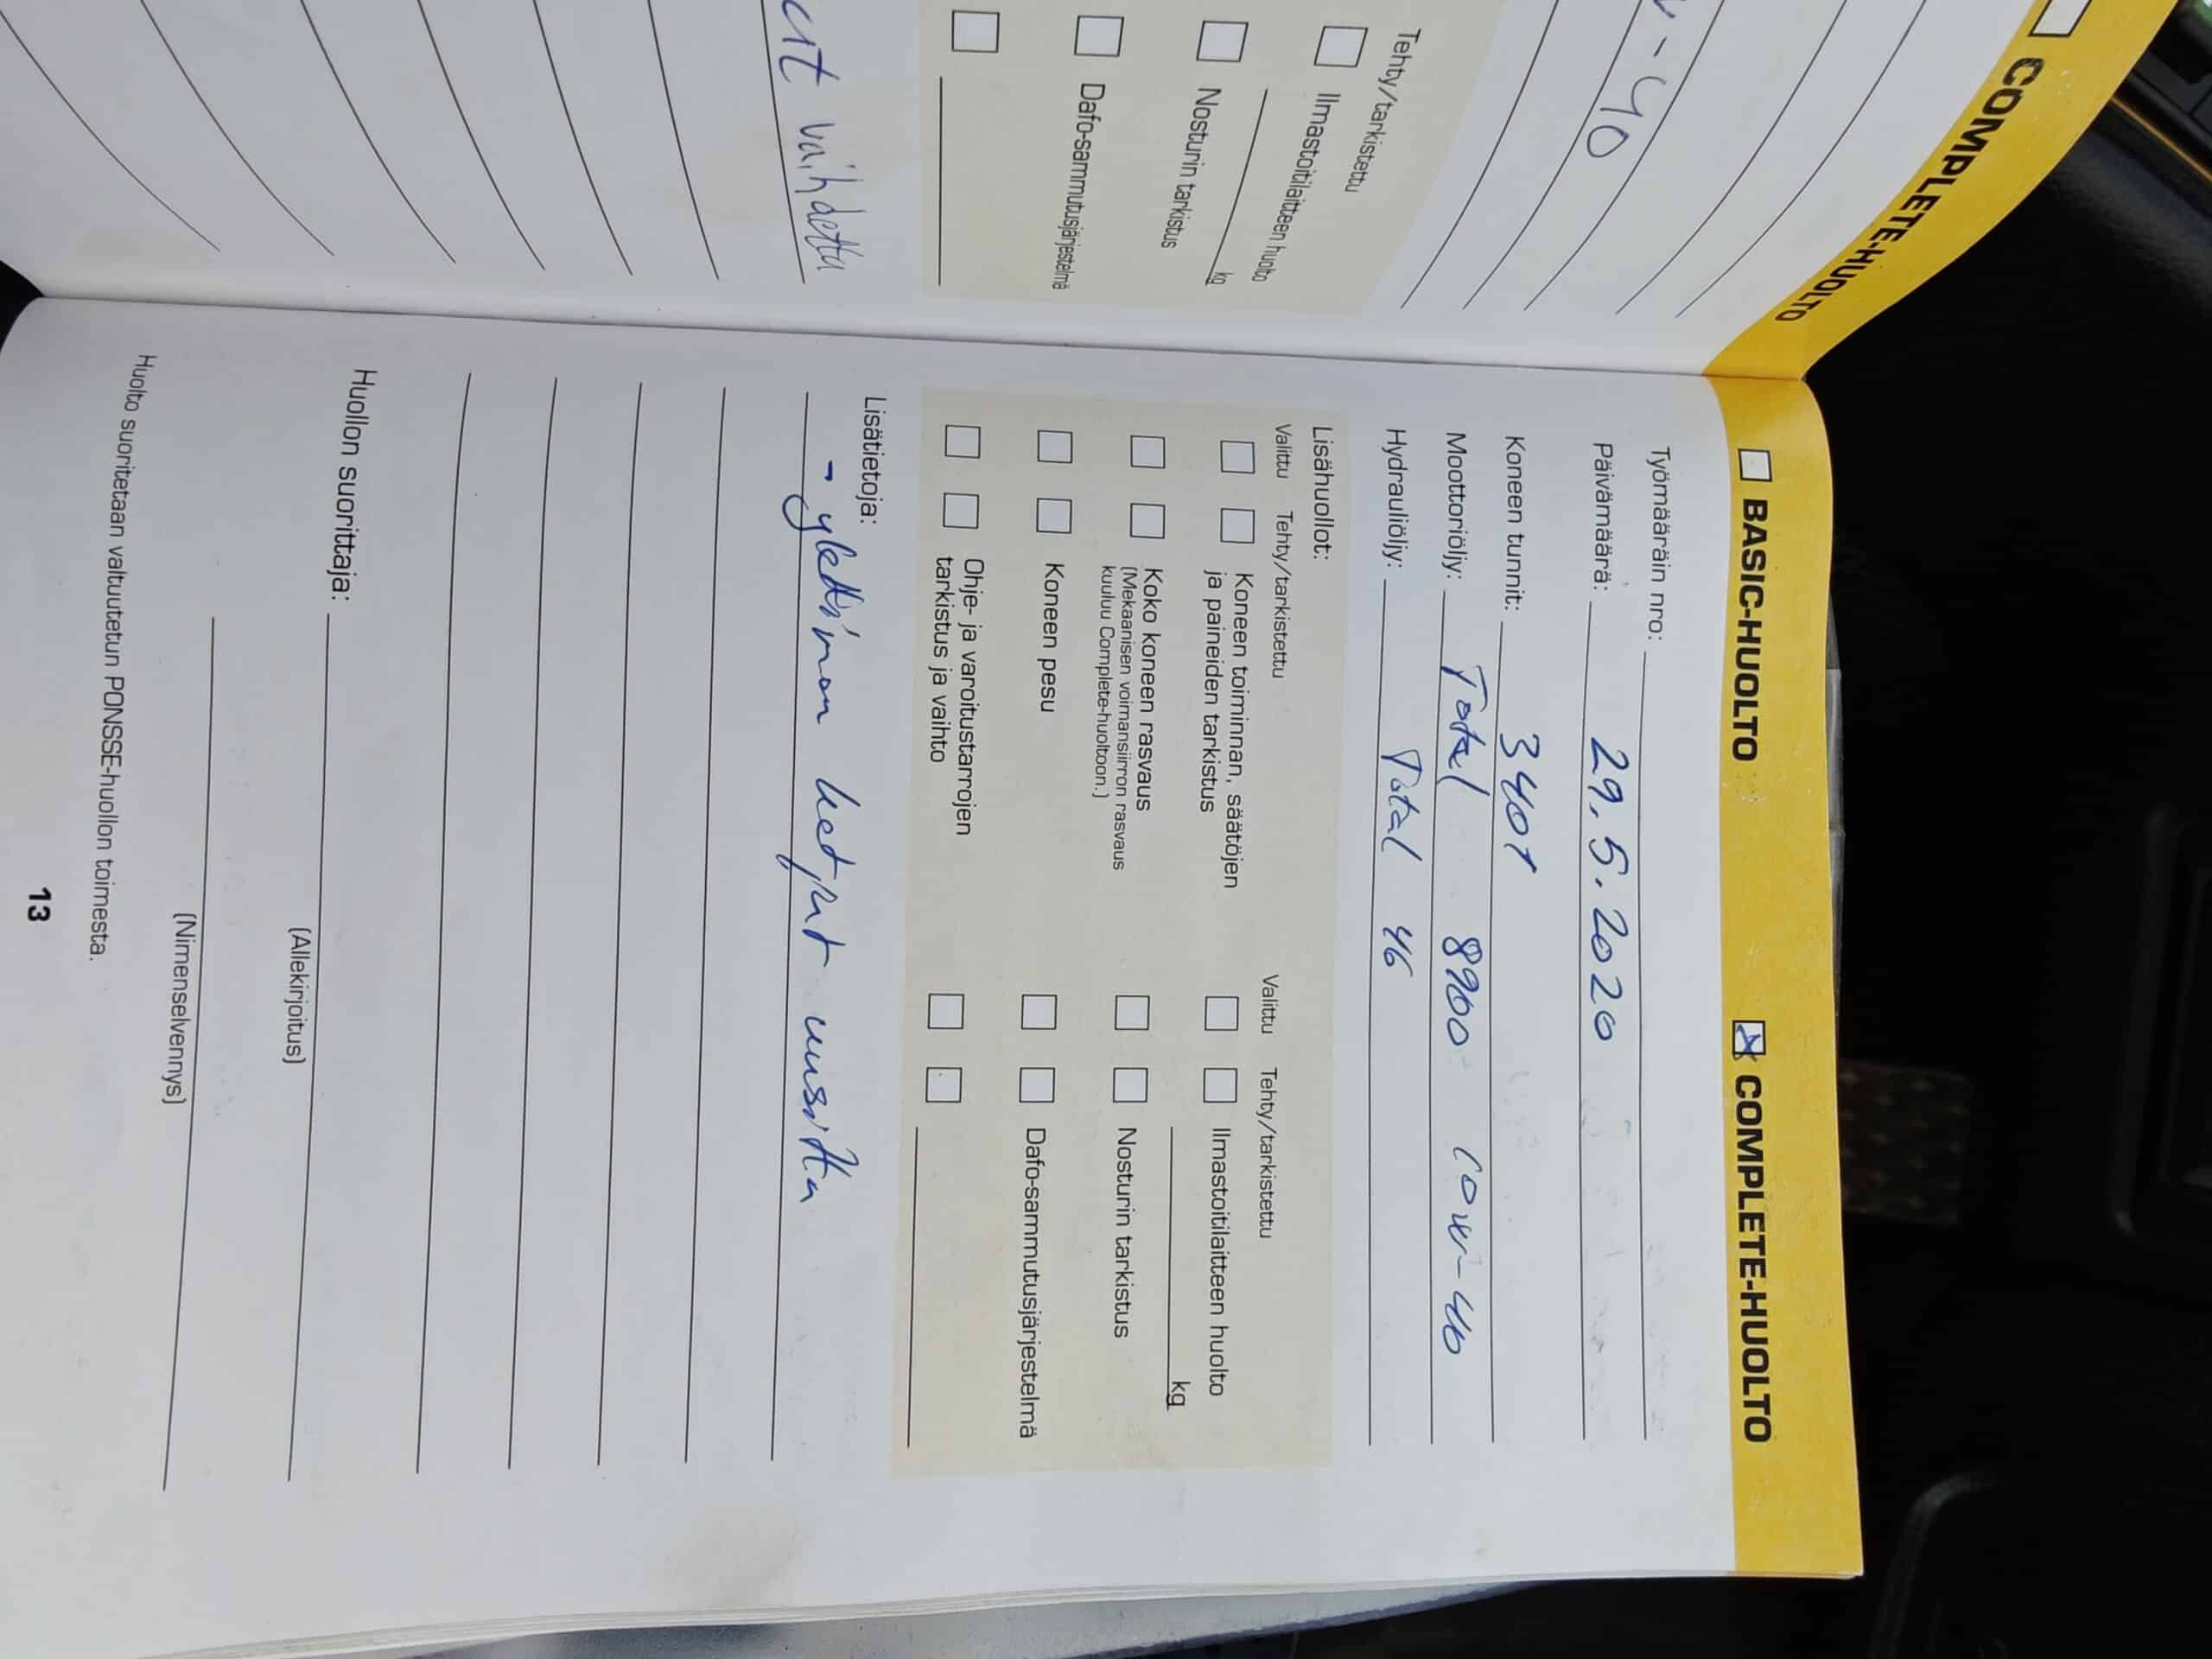 COMPLETE-HUOLTO
-40
Tehty/tarkistettu
Ilmastoitilaitteen huolto
kg
Nosturin tarkistus
Dafo-sammutusjärjestelmä
vaihdettu
BASIC-HUOLTO
COMPLETE-HUOLTO
Työmääräin nro:
Päivämäärä: 29.5.2020
Koneen tunnit: 3401
Moottoriöljy: Total 8900 10w-40
Hydrauliöljy: Total 46
Lisähuollot:
Valittu Tehty/tarkistettu
Koneen toiminnan, säätöjen
ja paineiden tarkistus
Koko koneen rasvaus
(Mekaanisen voimansiirron rasvaus
kuuluu Complete-huoltoon.)
Koneen pesu
Ohje- ja varoitustarrojen
tarkistus ja vaihto
Valittu Tehty/tarkistettu
Ilmastoitilaitteen huolto
kg
Nosturin tarkistus
Dafo-sammutusjärjestelmä
Lisätietoja:
- ketjut uusittu
Huollon suorittaja:
(Allekirjoitus)
(Nimenselvennys)
Huolto suoritetaan valtuutetun PONSSE-huollon toimesta.
13